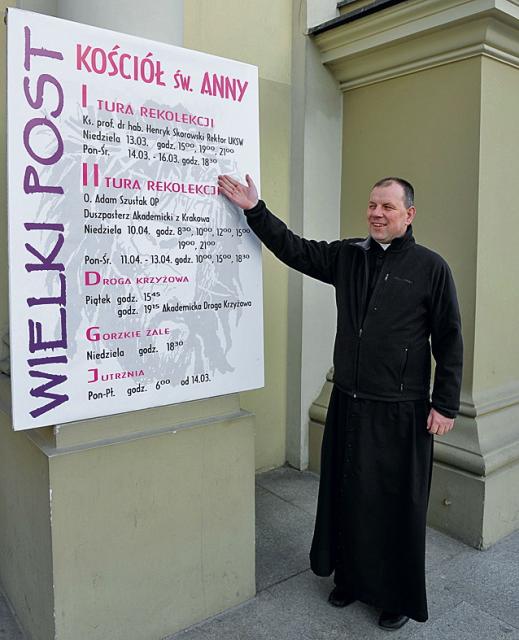 WIELKI POST
KOŚCIÓŁ ŚW. ANNY
I TURA REKOLEKCJI
Ks. prof. dr hab. Henryk Skorowski Rektor UKSW
Niedziela 13.03. godz. 15⁰⁰, 19⁰⁰, 21⁰⁰
Pon-Śr. 14.03. - 16.03. godz. 18³⁰
II TURA REKOLEKCJI
O. Adam Szustak OP
Duszpasterz Akademicki z Krakowa
Niedziela 10.04. godz. 8³⁰, 10⁰⁰, 12⁰⁰, 15⁰⁰
19⁰⁰, 21⁰⁰
Pon-Śr. 11.04. - 13.04. godz. 10⁰⁰, 15⁰⁰, 18³⁰
DROGA KRZYŻOWA
Piątek godz. 15⁴⁵
godz. 19¹⁵ Akademicka Droga Krzyżowa
GORZKIE ŻALE
Niedziela godz. 18³⁰
JUTRZNIA
Pon-Pt. godz. 6⁰⁰ od 14.03.